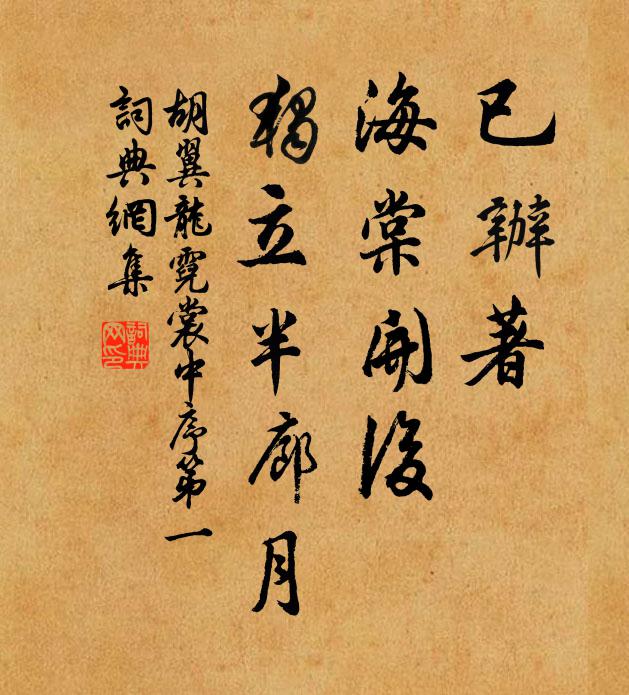 已辦著
海棠開後
獨立半廊月
胡翼龍霓裳中序第一
詞典網集
詞典網印